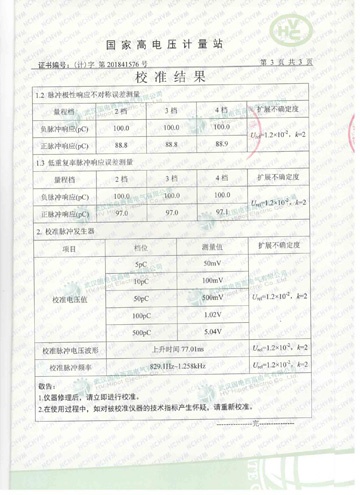 国家高电压计量站
证书编号：(计)字 第 201841576 号
第 3 页 共 3 页
校准结果
1.2 脉冲极性响应不对称误差测量
量程档 2 档 3 档 4 档 扩展不确定度
负脉冲响应(pC) 100.0 100.0 100.0 Urel=1.2×10⁻², k=2
正脉冲响应(pC) 88.8 88.8 88.9
1.3 低重复率脉冲响应误差测量
量程档 2 档 3 档 4 档 扩展不确定度
负脉冲响应(pC) 100.0 100.0 100.0 Urel=1.2×10⁻², k=2
正脉冲响应(pC) 97.0 97.0 97.1
2. 校准脉冲发生器
项目 档位 测量值 扩展不确定度
校准电压值 5pC 50mV Urel=1.2×10⁻², k=2
10pC 100mV
50pC 500mV
100pC 1.02V
500pC 5.04V
校准脉冲电压波形 上升时间 77.01ns Urel=1.2×10⁻², k=2
校准脉冲频率 829.1Hz~1.258kHz Urel=1.2×10⁻², k=2
敬告：
1.仪器修理后，请立即进行校准。
2.在使用过程中，如对被校准仪器的技术指标产生怀疑，请重新校准。
---------------完---------------